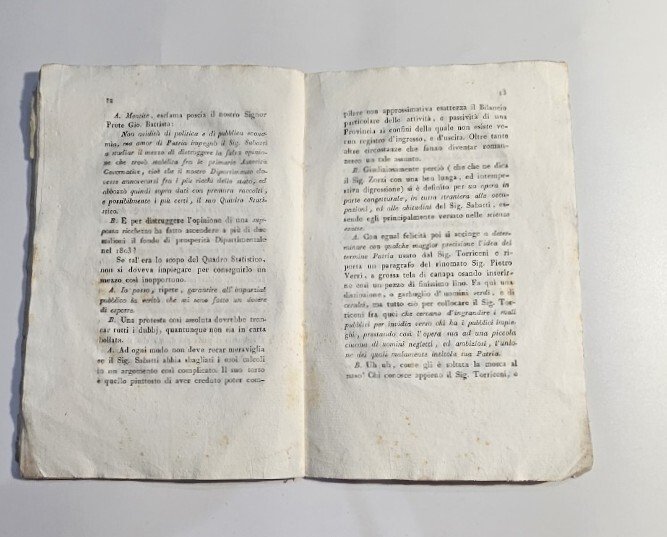 12
A. Mentite, esclama poscia il nostro Signor
Prete Gio. Battista:
Non avidità di politica e di pubblica econo-
mia, ma amor di Patria impegnò il Sig. Sabatti
a studiar il mezzo di distruggere la falsa opinio-
ne che trovò stabilita fra le primarie Autorità
Governative, cioè che il nostro Dipartimento do-
vesse annoverarsi fra i più ricchi dello stato, ed
abbozzò quindi sopra dati con premura raccolti,
e possibilmente i più certi, il suo Quadro Stati-
stico.
B. E per distruggere l'opinione di una sup-
posta ricchezza ha fatto ascendere a più di due
milioni il fondo di prosperità Dipartimentale
nel 1803?
Se tal'era lo scopo del Quadro Statistico,
non si doveva impiegar per conseguirlo un
mezzo così inopportuno.
A. Io posso, ripete, garantire all'imparzial
pubblico la verità che mi sono fatto un dovere
di esporre.
B. Una protesta così assoluta dovrebbe tron-
car tutti i dubbj, quantunque non sia in carta
bollata.
A. Ad ogni modo non deve recar meraviglia
se il Sig. Sabatti abbia sbagliati i suoi calcoli
in un argomento così complicato. Il suo torto
è quello piuttosto di aver creduto poter com-
13
pilare non approssimativa esattezza il Bilancio
particolare delle attività, e passività di una
Provincia ai confini della quale non esiste ve-
run registro d'ingresso, e d'uscita. Oltre tante
altre circostanze che fanno diventar roman-
zesco un tale assunto.
B. Giudiziosamente perciò (che che ne dica
il Sig. Zorzi con una ben lunga, ed intempe-
rativa digressione) si è definito per un opera in
parte congetturale, in tutto straniera alle occu-
pazioni, ed alle abitudini del Sig. Sabatti, es-
sendo egli principalmente versato nelle scienze
esatte.
A. Con egual felicità poi si accinge a deter-
minare con qualche maggior precisione l'idea del
termine Patria usato dal Sig. Torriceni, e ri-
porta un paragrafo del rinomato Sig. Pietro
Verri, a grossa tela di canapa osando inserire
così un pezzo di finissimo lino. Fa qui una
distinzione, e garbuglio d'uomini verdi, e di
cerulei, ma tutto ciò per collocare il Sig. Tor-
riceni fra quei che cercano d'ingrandire i mali
pubblici per invidia verso chi ha i pubblici impie-
ghi, prestando così l'opera sua ad una piccola
ciurma di uomini negletti, ed ambiziosi, l'unio-
ne dei quali malamente intitola sua Patria.
B. Uh uh, come gli è saltata la mosca al
naso! Chi conosce appena il Sig. Torriceni, e